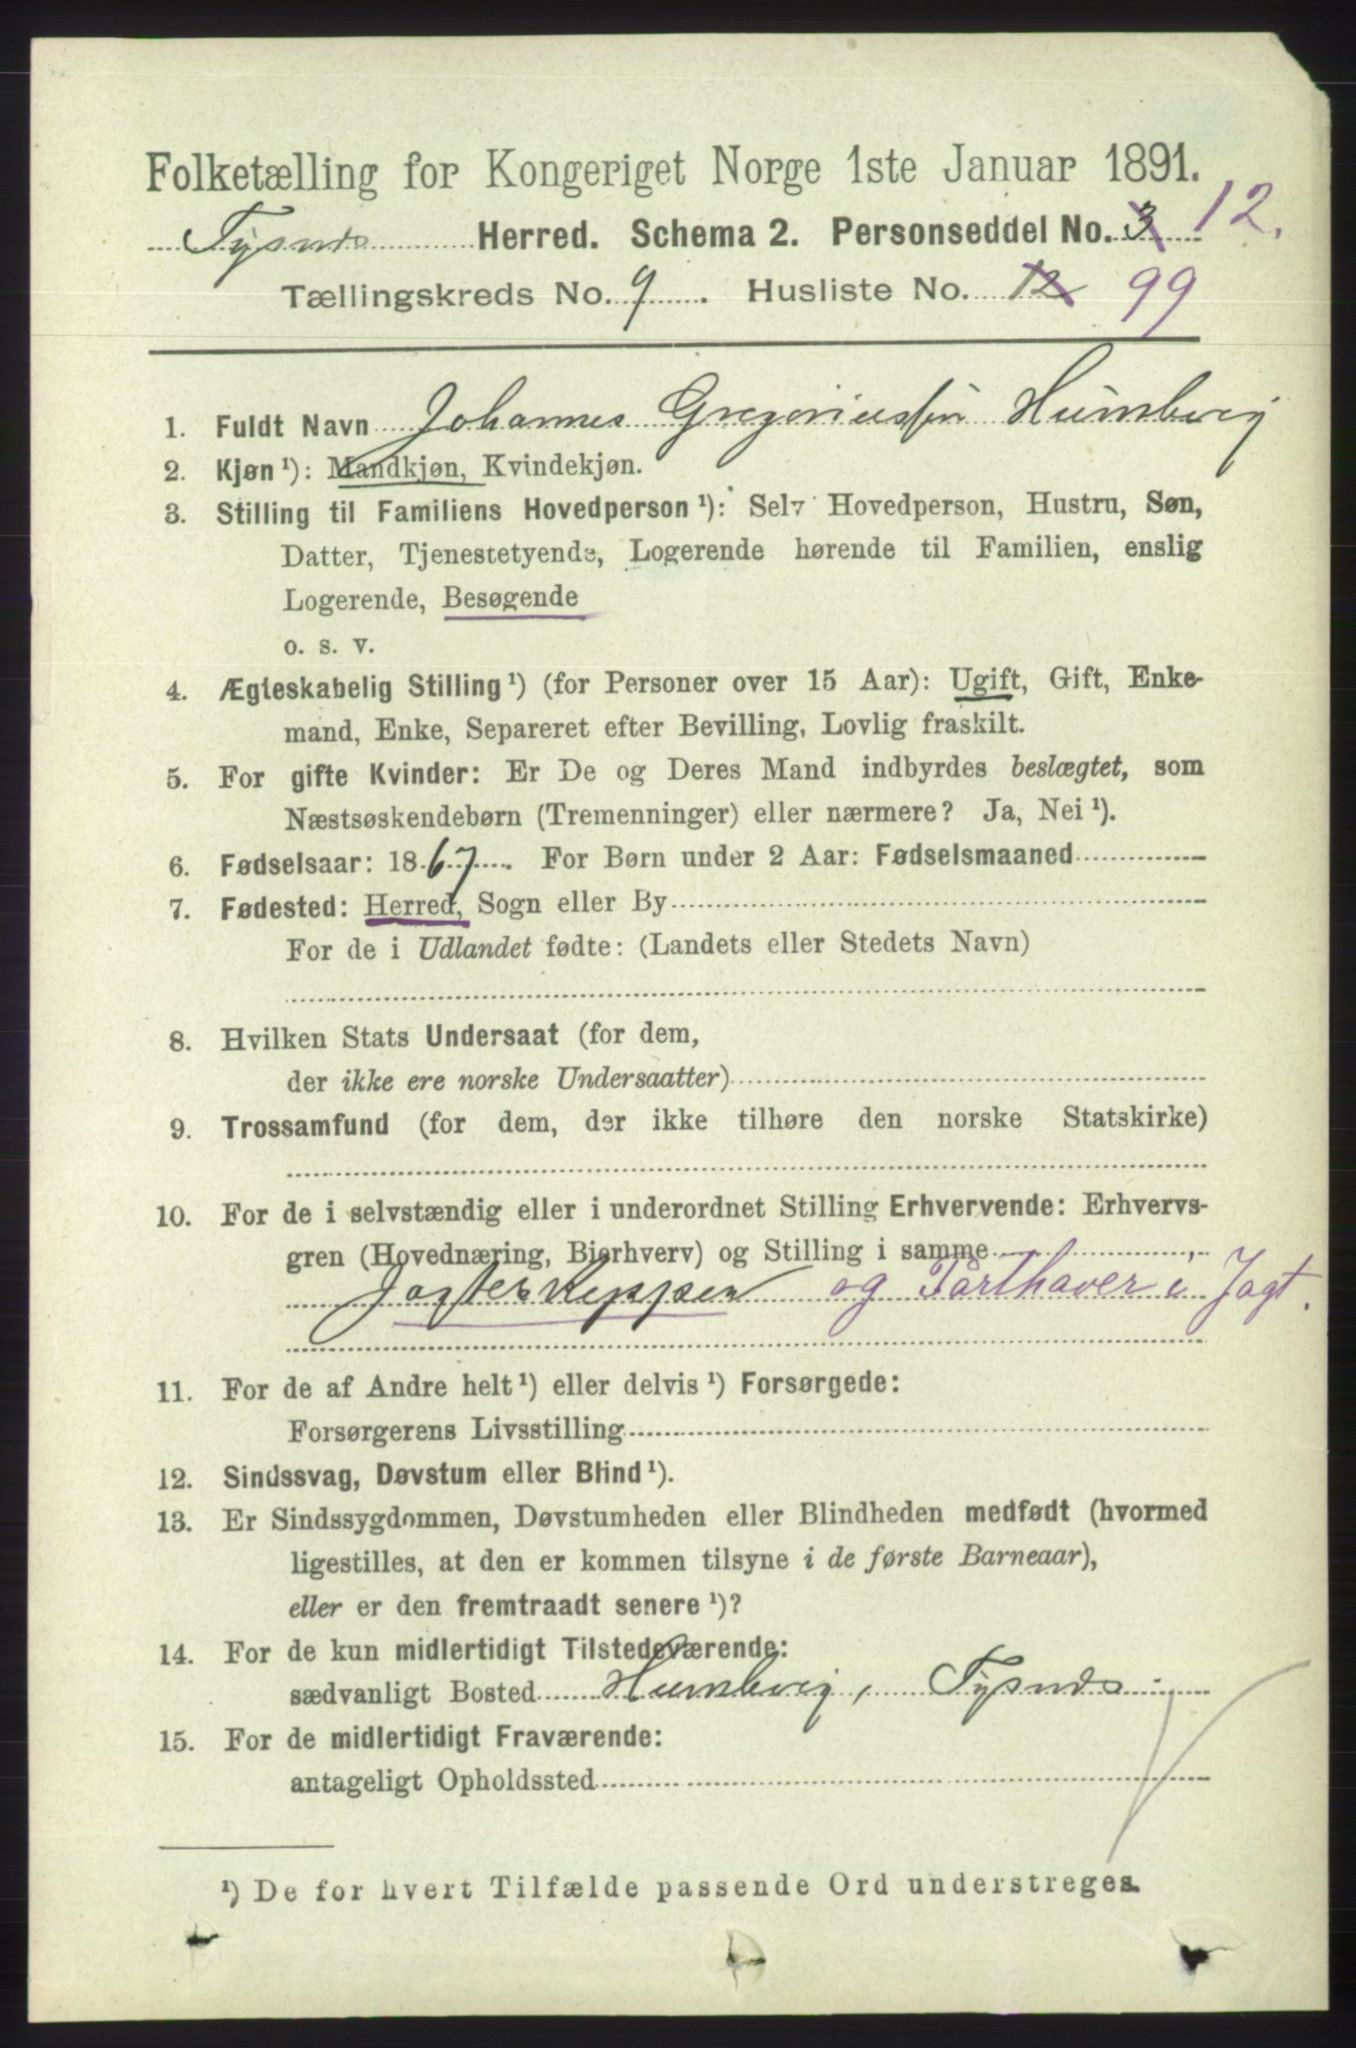 Folketælling for Kongeriget Norge 1ste Januar 1891.
Tysnæs Herred. Schema 2. Personseddel No. 3 12.
Tællingskreds No. 9. Husliste No. 12 99
1. Fuldt Navn Johannes Gregoriussøn Humbvig
2. Kjøn ¹): Mandkjøn, Kvindekjøn.
3. Stilling til Familiens Hovedperson ¹): Selv Hovedperson, Hustru, Søn,
Datter, Tjenestetyende, Logerende hørende til Familien, enslig
Logerende, Besøgende
o. s. v.
4. Ægteskabelig Stilling ¹) (for Personer over 15 Aar): Ugift, Gift, Enke-
mand, Enke, Separeret efter Bevilling, Lovlig fraskilt.
5. For gifte Kvinder: Er De og Deres Mand indbyrdes beslægtet, som
Næstsøskendebørn (Tremenninger) eller nærmere? Ja, Nei ¹).
6. Fødselsaar: 1867. For Børn under 2 Aar: Fødselsmaaned
7. Fødested: Herred, Sogn eller By
For de i Udlandet fødte: (Landets eller Stedets Navn)
8. Hvilken Stats Undersaat (for dem,
der ikke ere norske Undersaatter)
9. Trossamfund (for dem, der ikke tilhøre den norske Statskirke)
10. For de i selvstændig eller i underordnet Stilling Erhvervende: Erhvervs-
gren (Hovednæring, Bierhverv) og Stilling i samme
Jagteskipper og Parthaver i Jagt.
11. For de af Andre helt ¹) eller delvis ¹) Forsørgede:
Forsørgerens Livsstilling
12. Sindssvag, Døvstum eller Blind ¹).
13. Er Sindssygdommen, Døvstumheden eller Blindheden medfødt (hvormed
ligestilles, at den er kommen tilsyne i de første Barneaar),
eller er den fremtraadt senere ¹)?
14. For de kun midlertidigt Tilstedeværende:
sædvanligt Bosted Humbvig, Tysnæs.
15. For de midlertidigt Fraværende:
antageligt Opholdssted
¹) De for hvert Tilfælde passende Ord understreges.